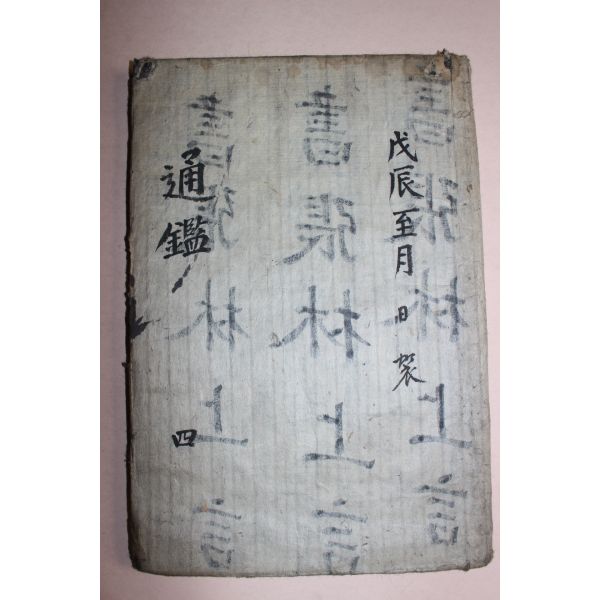 戊辰至月 日 裝
通鑑
四
書張林上言
書張林上言
書張林上言